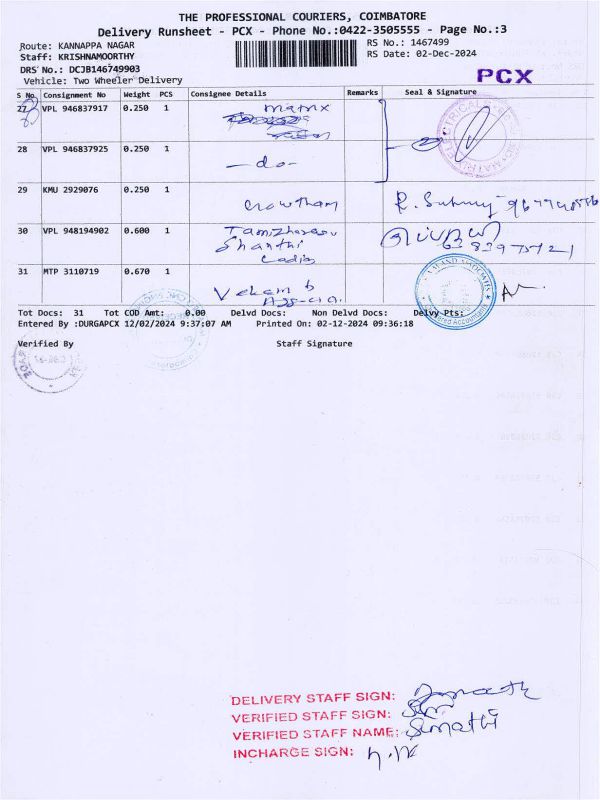 THE PROFESSIONAL COURIERS, COIMBATORE
Delivery Runsheet - PCX - Phone No.:0422-3505555 - Page No.:3
Route: KANNAPPA NAGAR
RS No.: 1467499
Staff: KRISHNAMOORTHY
RS Date: 02-Dec-2024
DRS No.: DCJB146749903
Vehicle: Two Wheeler Delivery
PCX
S No. Consignment No Weight PCS Consignee Details Remarks Seal & Signature
27 VPL 946837917 0.250 1 matrix
28 VPL 946837925 0.250 1 - do -
29 KMU 2929076 0.250 1 Gowtham
30 VPL 948194902 0.600 1
Shanthi
31 MTP 3110719 0.670 1
Tot Docs: 31 Tot COD Amt: 0.00 Delvd Docs: Non Delvd Docs: Delvy Pts:
Entered By :DURGAPCX 12/02/2024 9:37:07 AM Printed On: 02-12-2024 09:36:18
Verified By Staff Signature
DELIVERY STAFF SIGN:
VERIFIED STAFF SIGN:
VERIFIED STAFF NAME: Sumathi
INCHARGE SIGN: